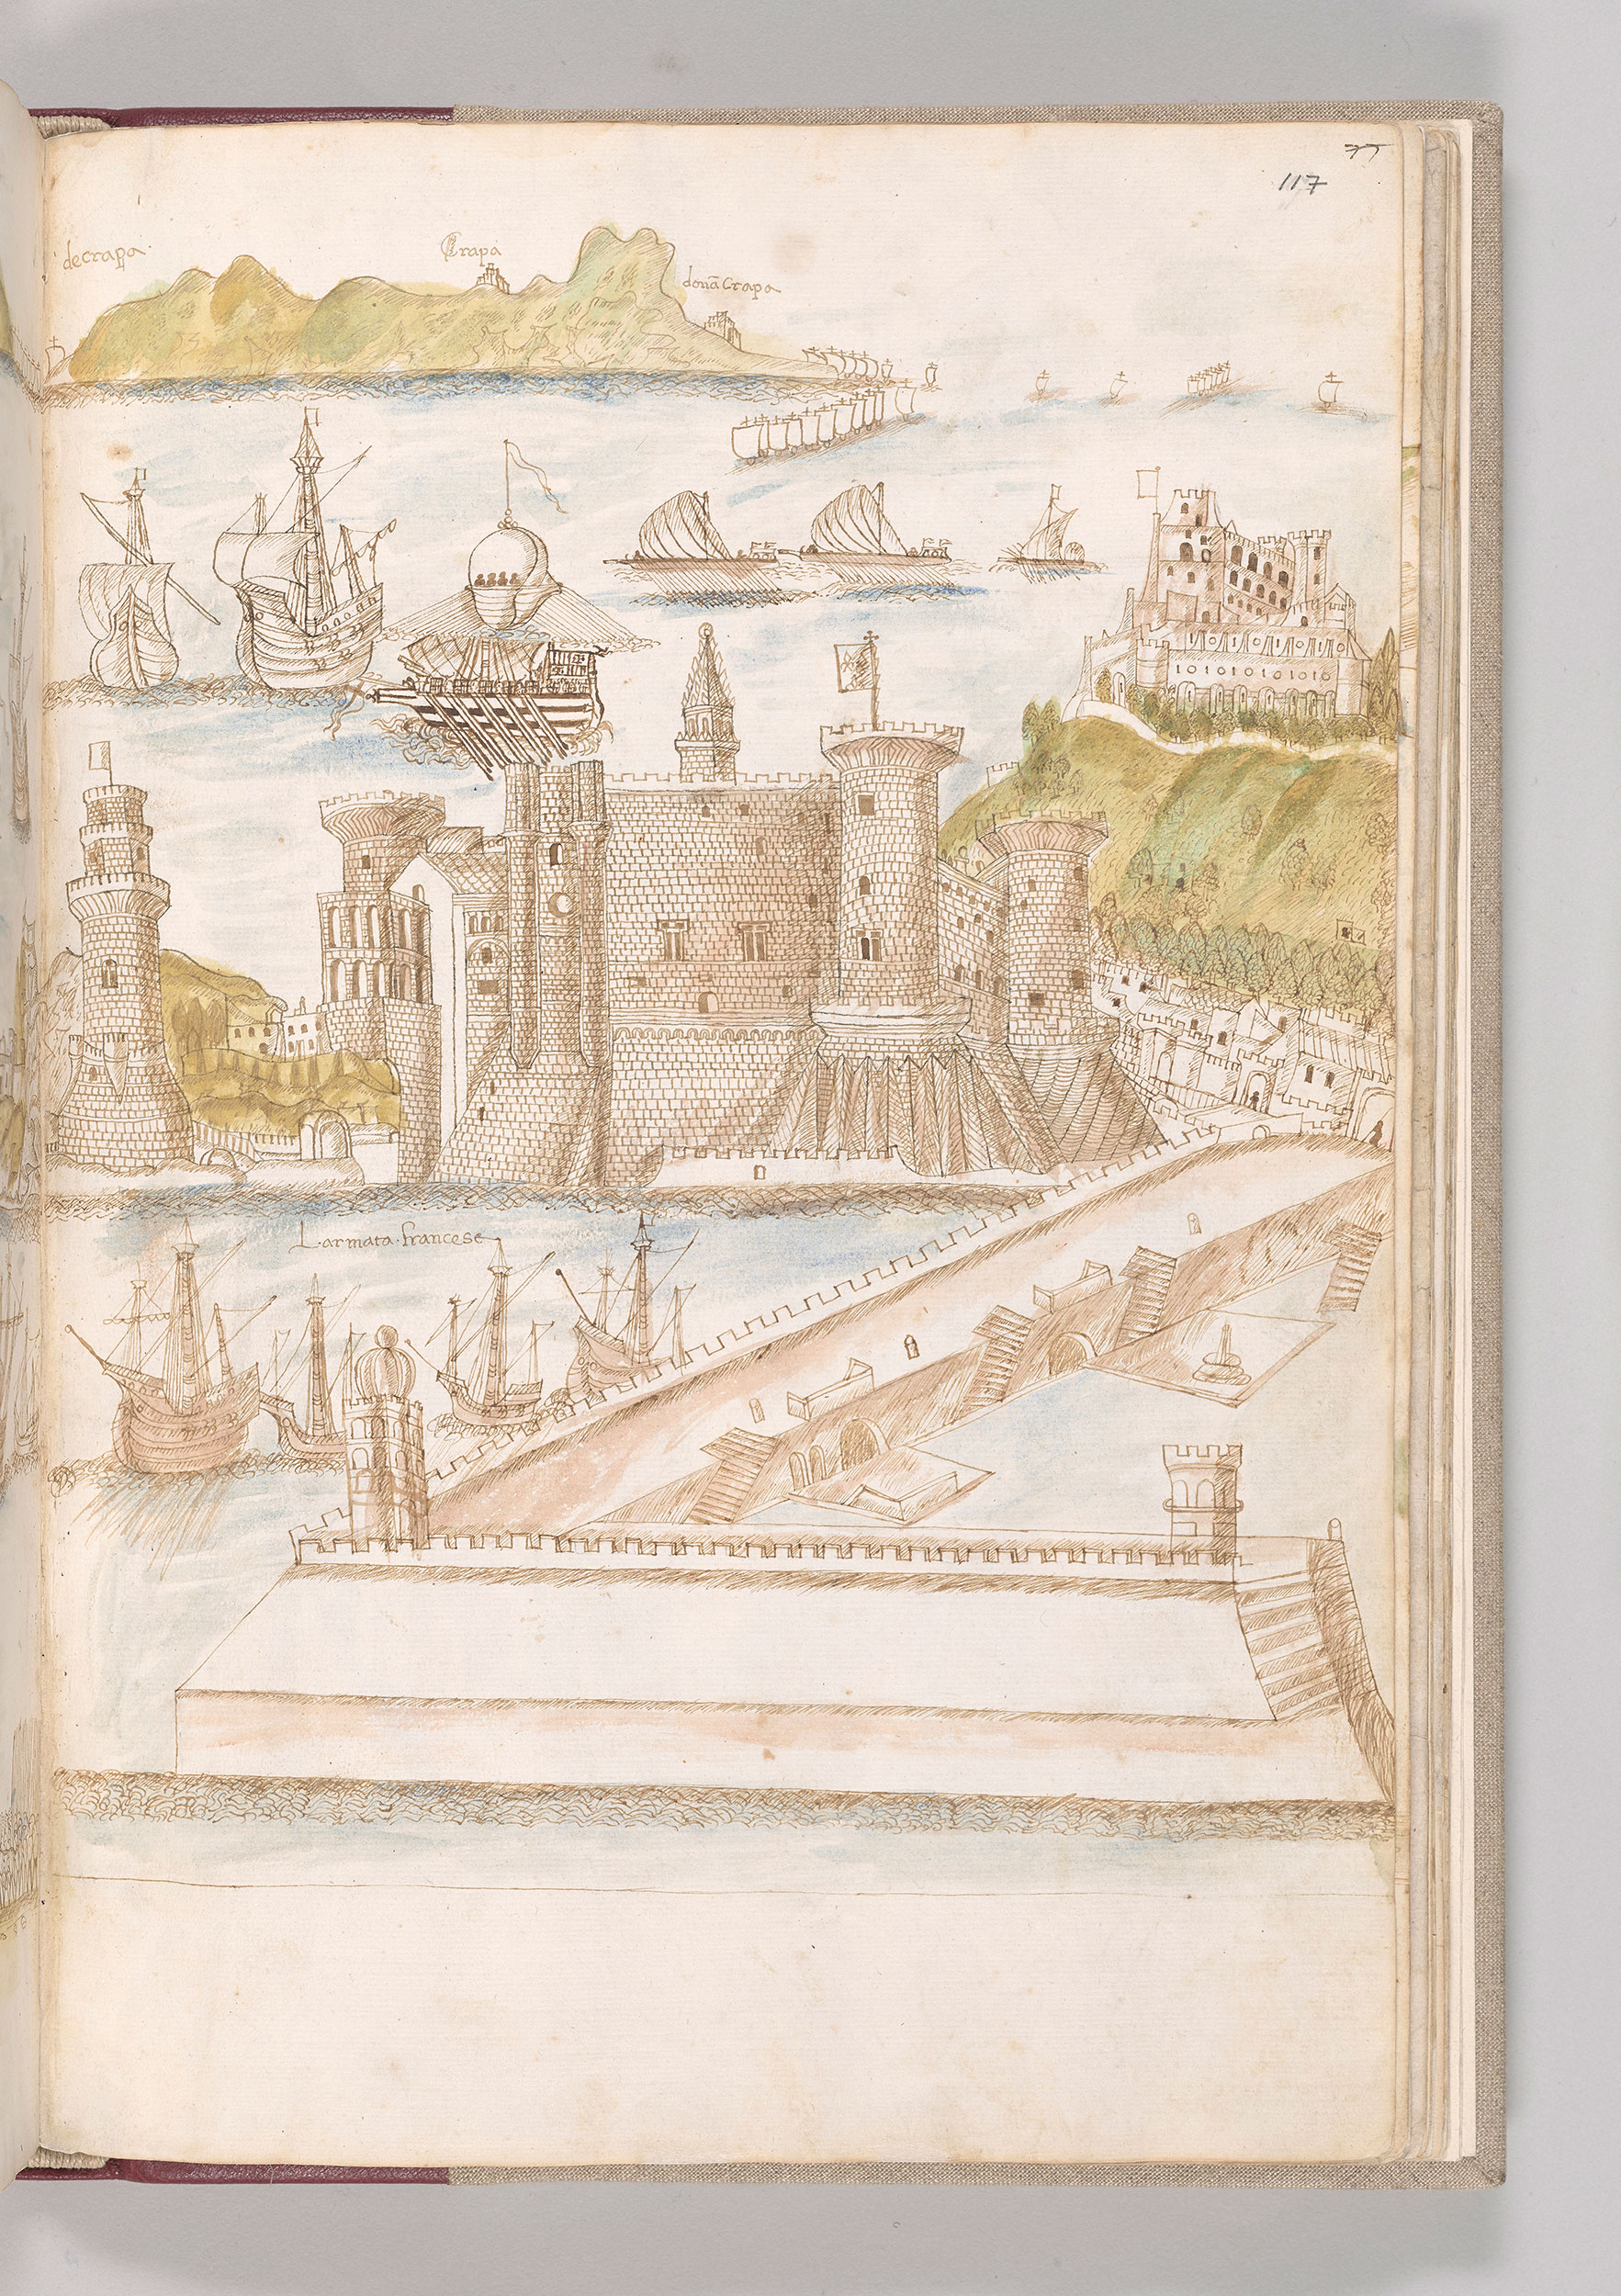 117
decrapa
Crapa
donā crapa
Larmata · francese